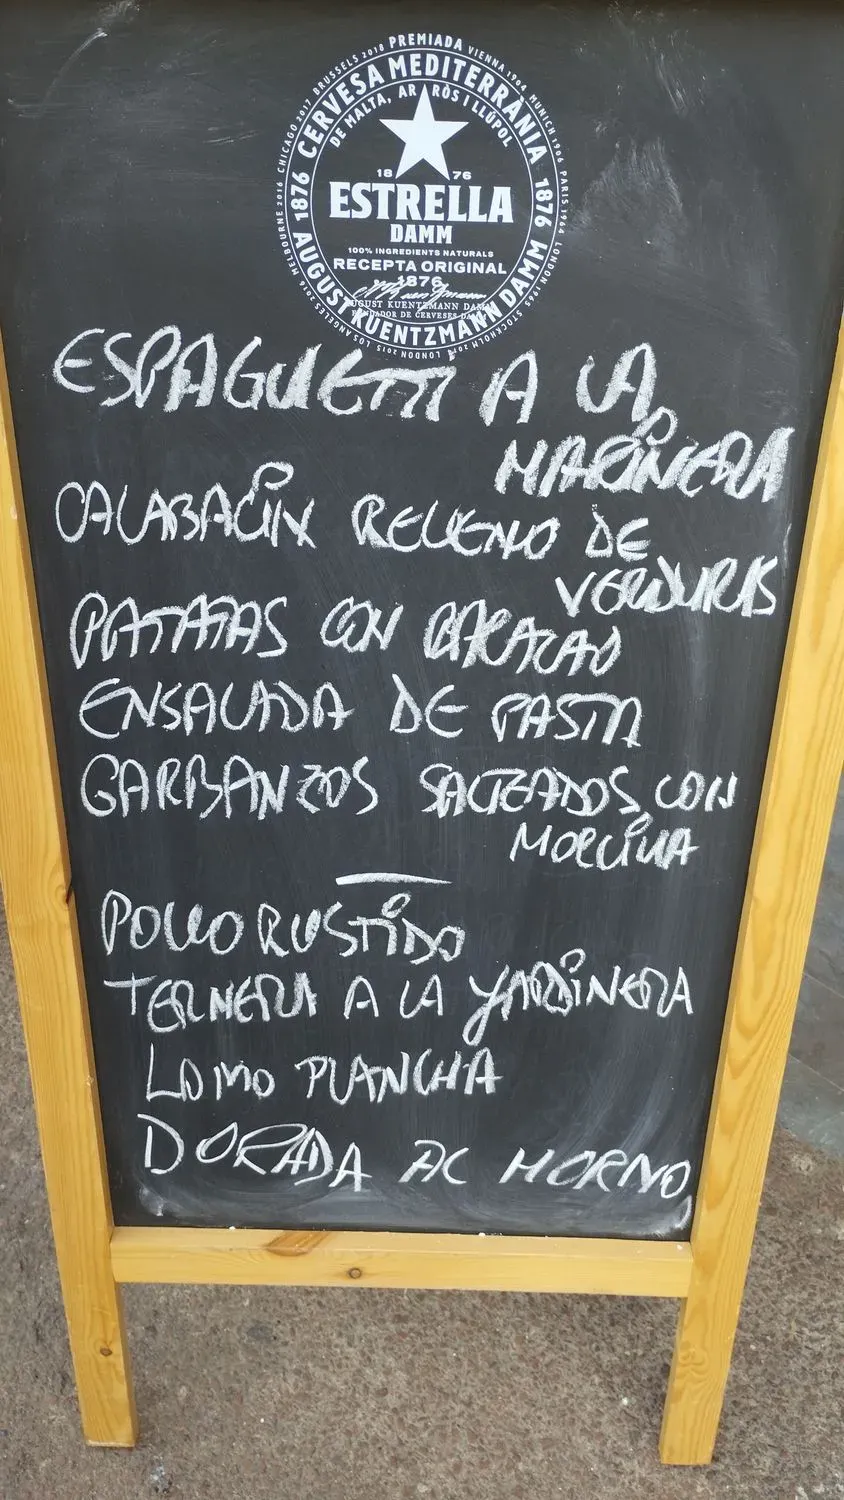 PREMIADA VIENNA 1904 MUNICH 1906 PARIS 1964 LONDON 1965 STOCKHOLM 2011 LONDON LOS ANGELES 2015 MELBOURNE 2016 CHICAGO 2017 BRUSSELS 2018
1876 CERVESA MEDITERRÀNIA 1876
DE MALTA, ARRÒS I LLÚPOL
18 76
ESTRELLA
DAMM
100% INGREDIENTS NATURALS
RECEPTA ORIGINAL
1876
AUGUST KUENTZMANN DAMM
FUNDADOR DE CERVESES DAMM
AUGUST KUENTZMANN DAMM
ESPAGUETTI A LA
MARINERA
CALABACIN RELLENO DE
VERDURAS
PATATAS CON BACALAO
ENSALADA DE PASTA
GARBANZOS SALTEADOS CON
MORCILLA
POLLO RUSTIDO
TERNERA A LA JARDINERA
LOMO PLANCHA
DORADA AL HORNO